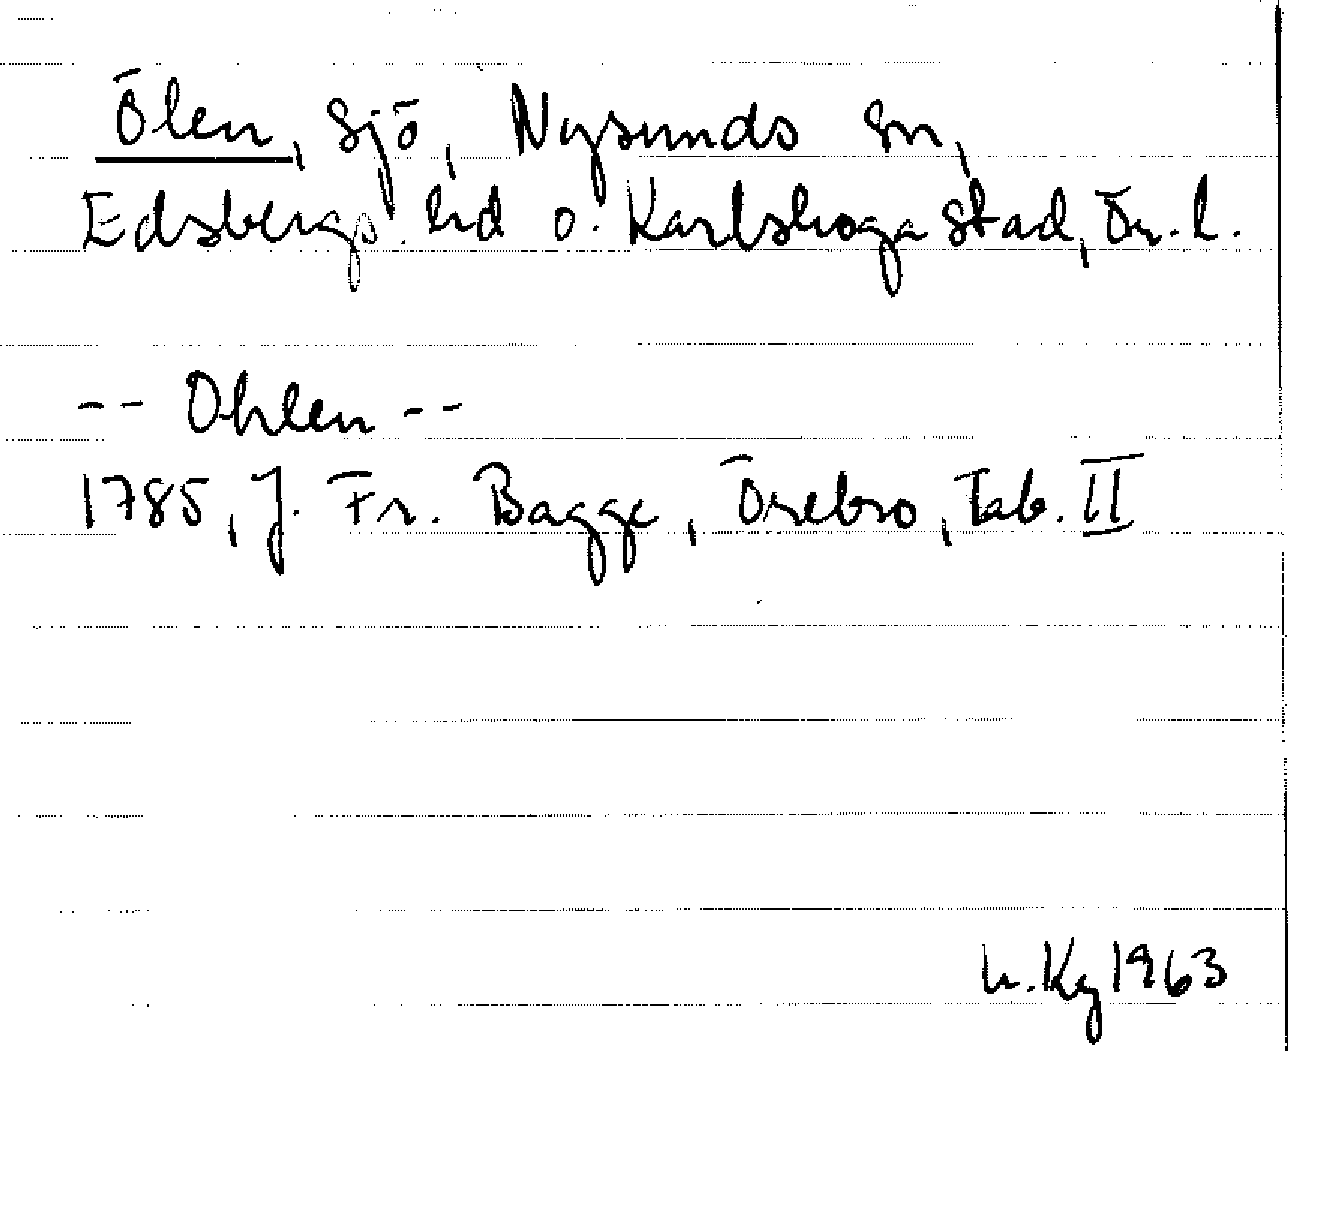 Ölen, sjö, Nysunds sn,
Edsbergs hd o. Karlskoga stad, Ör. l.
-- Ohlen --
1785, J. Fr. Bagge, Örebro, Tab. II
h. Kg 1963